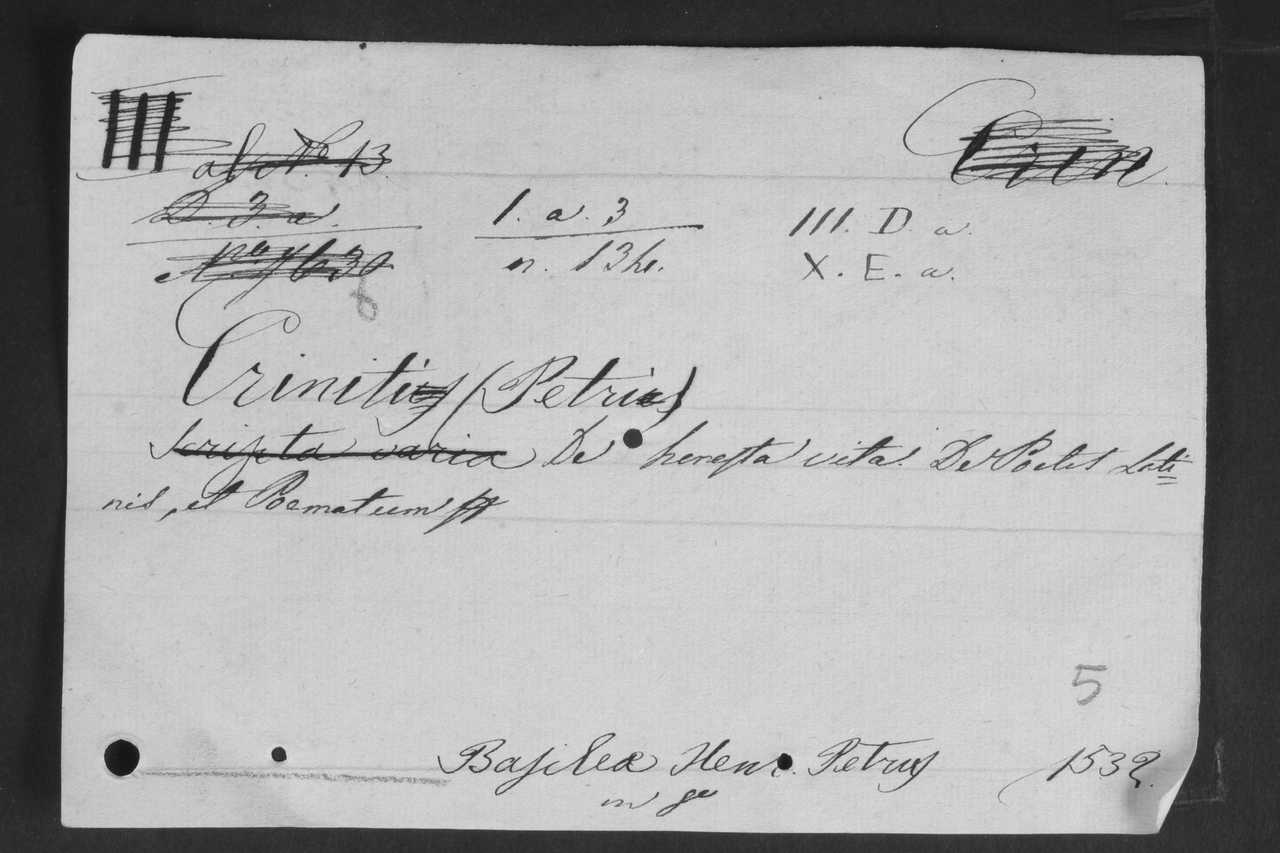 III
Crin
N.º 13
D. 3. a.
1. a. 3
III. D. a.
n. 13 he.
X. E. a.
Crinitius (Petrus)
Scripta varia De honesta vita. De Poetis Lati=
nis, et Poematum
5
Basileæ Henr. Petrus 1532.
in 8º